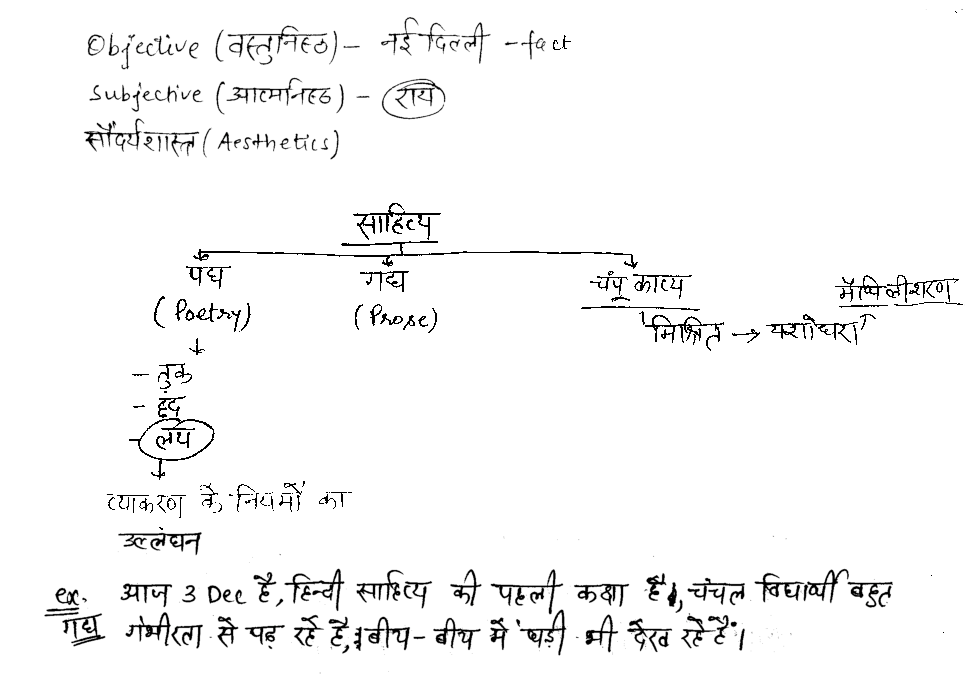 Objective (वस्तुनिष्ठ) - नई दिल्ली - fact
Subjective (आत्मनिष्ठ) - राय
सौंदर्यशास्त्र (Aesthetics)
साहित्य
पद्य गद्य चंपू काव्य मैथिलीशरण
(Poetry) (Prose) मिश्रित → यशोधरा
- तुक
- छंद
- लय
व्याकरण के नियमों का
उल्लंघन
ex. आज 3 Dec है, हिन्दी साहित्य की पहली कक्षा है, चंचल विद्यार्थी बहुत
गद्य गंभीरता से पढ़ रहे है, बीच-बीच में घड़ी भी देख रहे हैं।